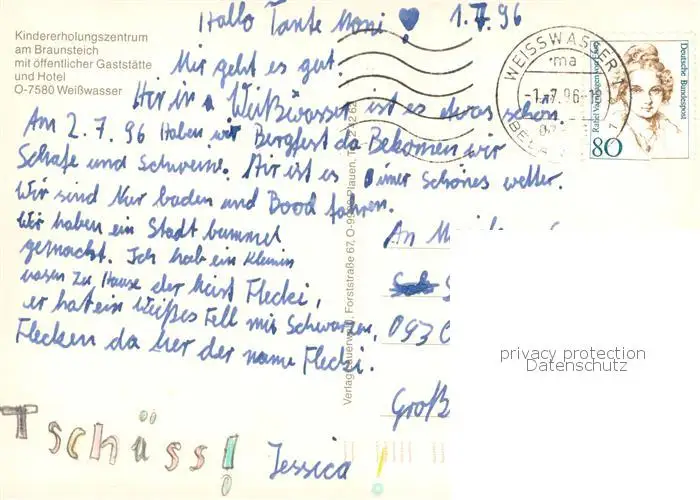 Kindererholungszentrum
am Braunsteich
mit öffentlicher Gaststätte
und Hotel
O-7580 Weißwasser
Hallo Tante Moni! 1.7.96
Mir geht es gut.
Hir in Weißwasser ist es etwas schon.
Am 2.7.96 Haben wir Bergfest da Bekomen wir
Schafe und Schweine. Hir ist es imer Schönes wetter.
Wir sind Nur baden und Bood fahren.
Wir haben ein Stadt bummel
gemacht. Ich hab ein Kleinin
Hasen Zu Hause der heist Flecki,
er hat ein Weißes Fell mit Schwarzen,
Flecken da her der name Flecki.
Tschüss!
Jessica
WEISSWASSER
ma
-1.-7.96
80
Deutsche Bundespost
An
093
Groß
Forststraße 67, O-9900 Plauen, Tel.
privacy protection
Datenschutz